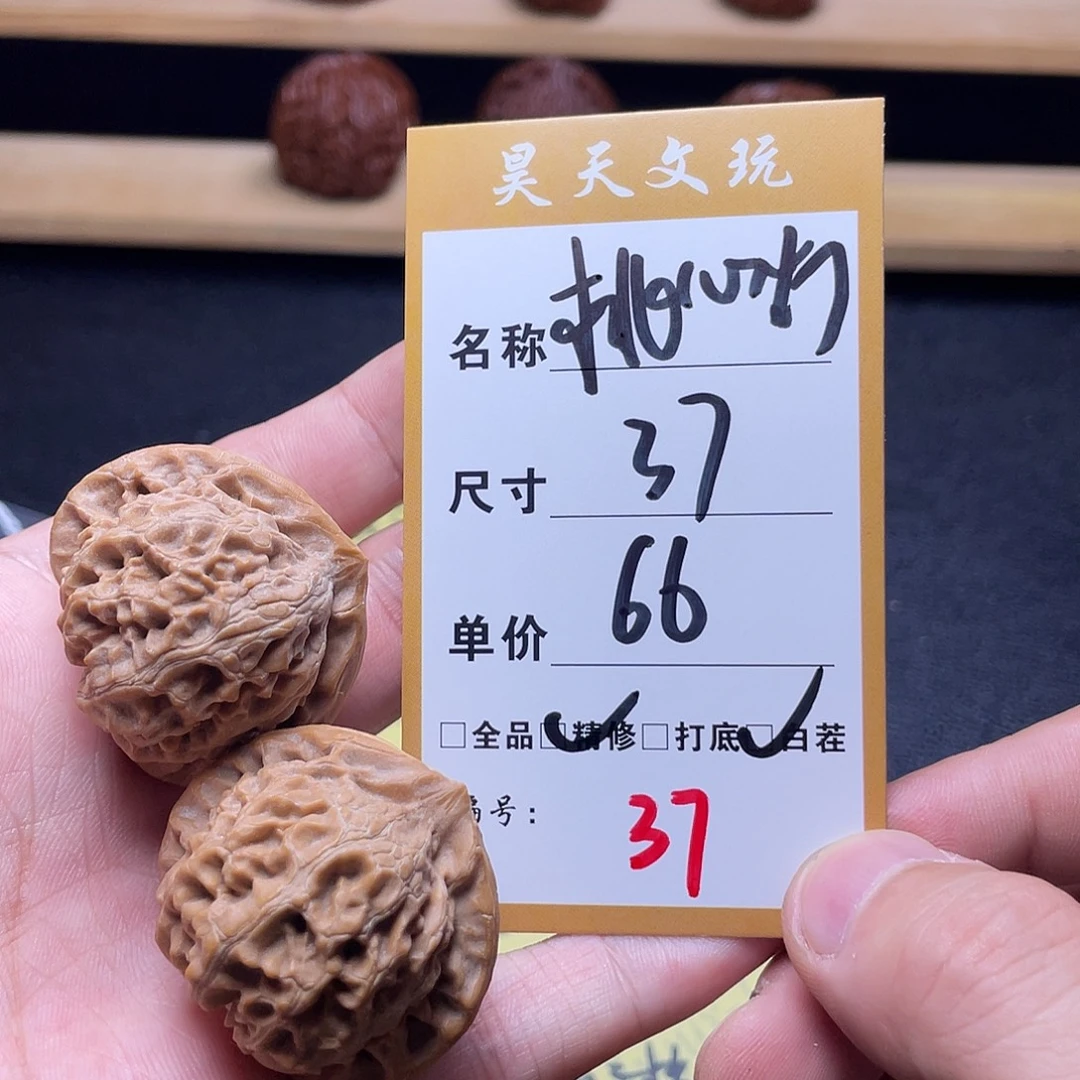 昊天文玩
名称
尺寸 37
单价 66
□全品 ☑精修 □打底 ☑白茬
编号： 37